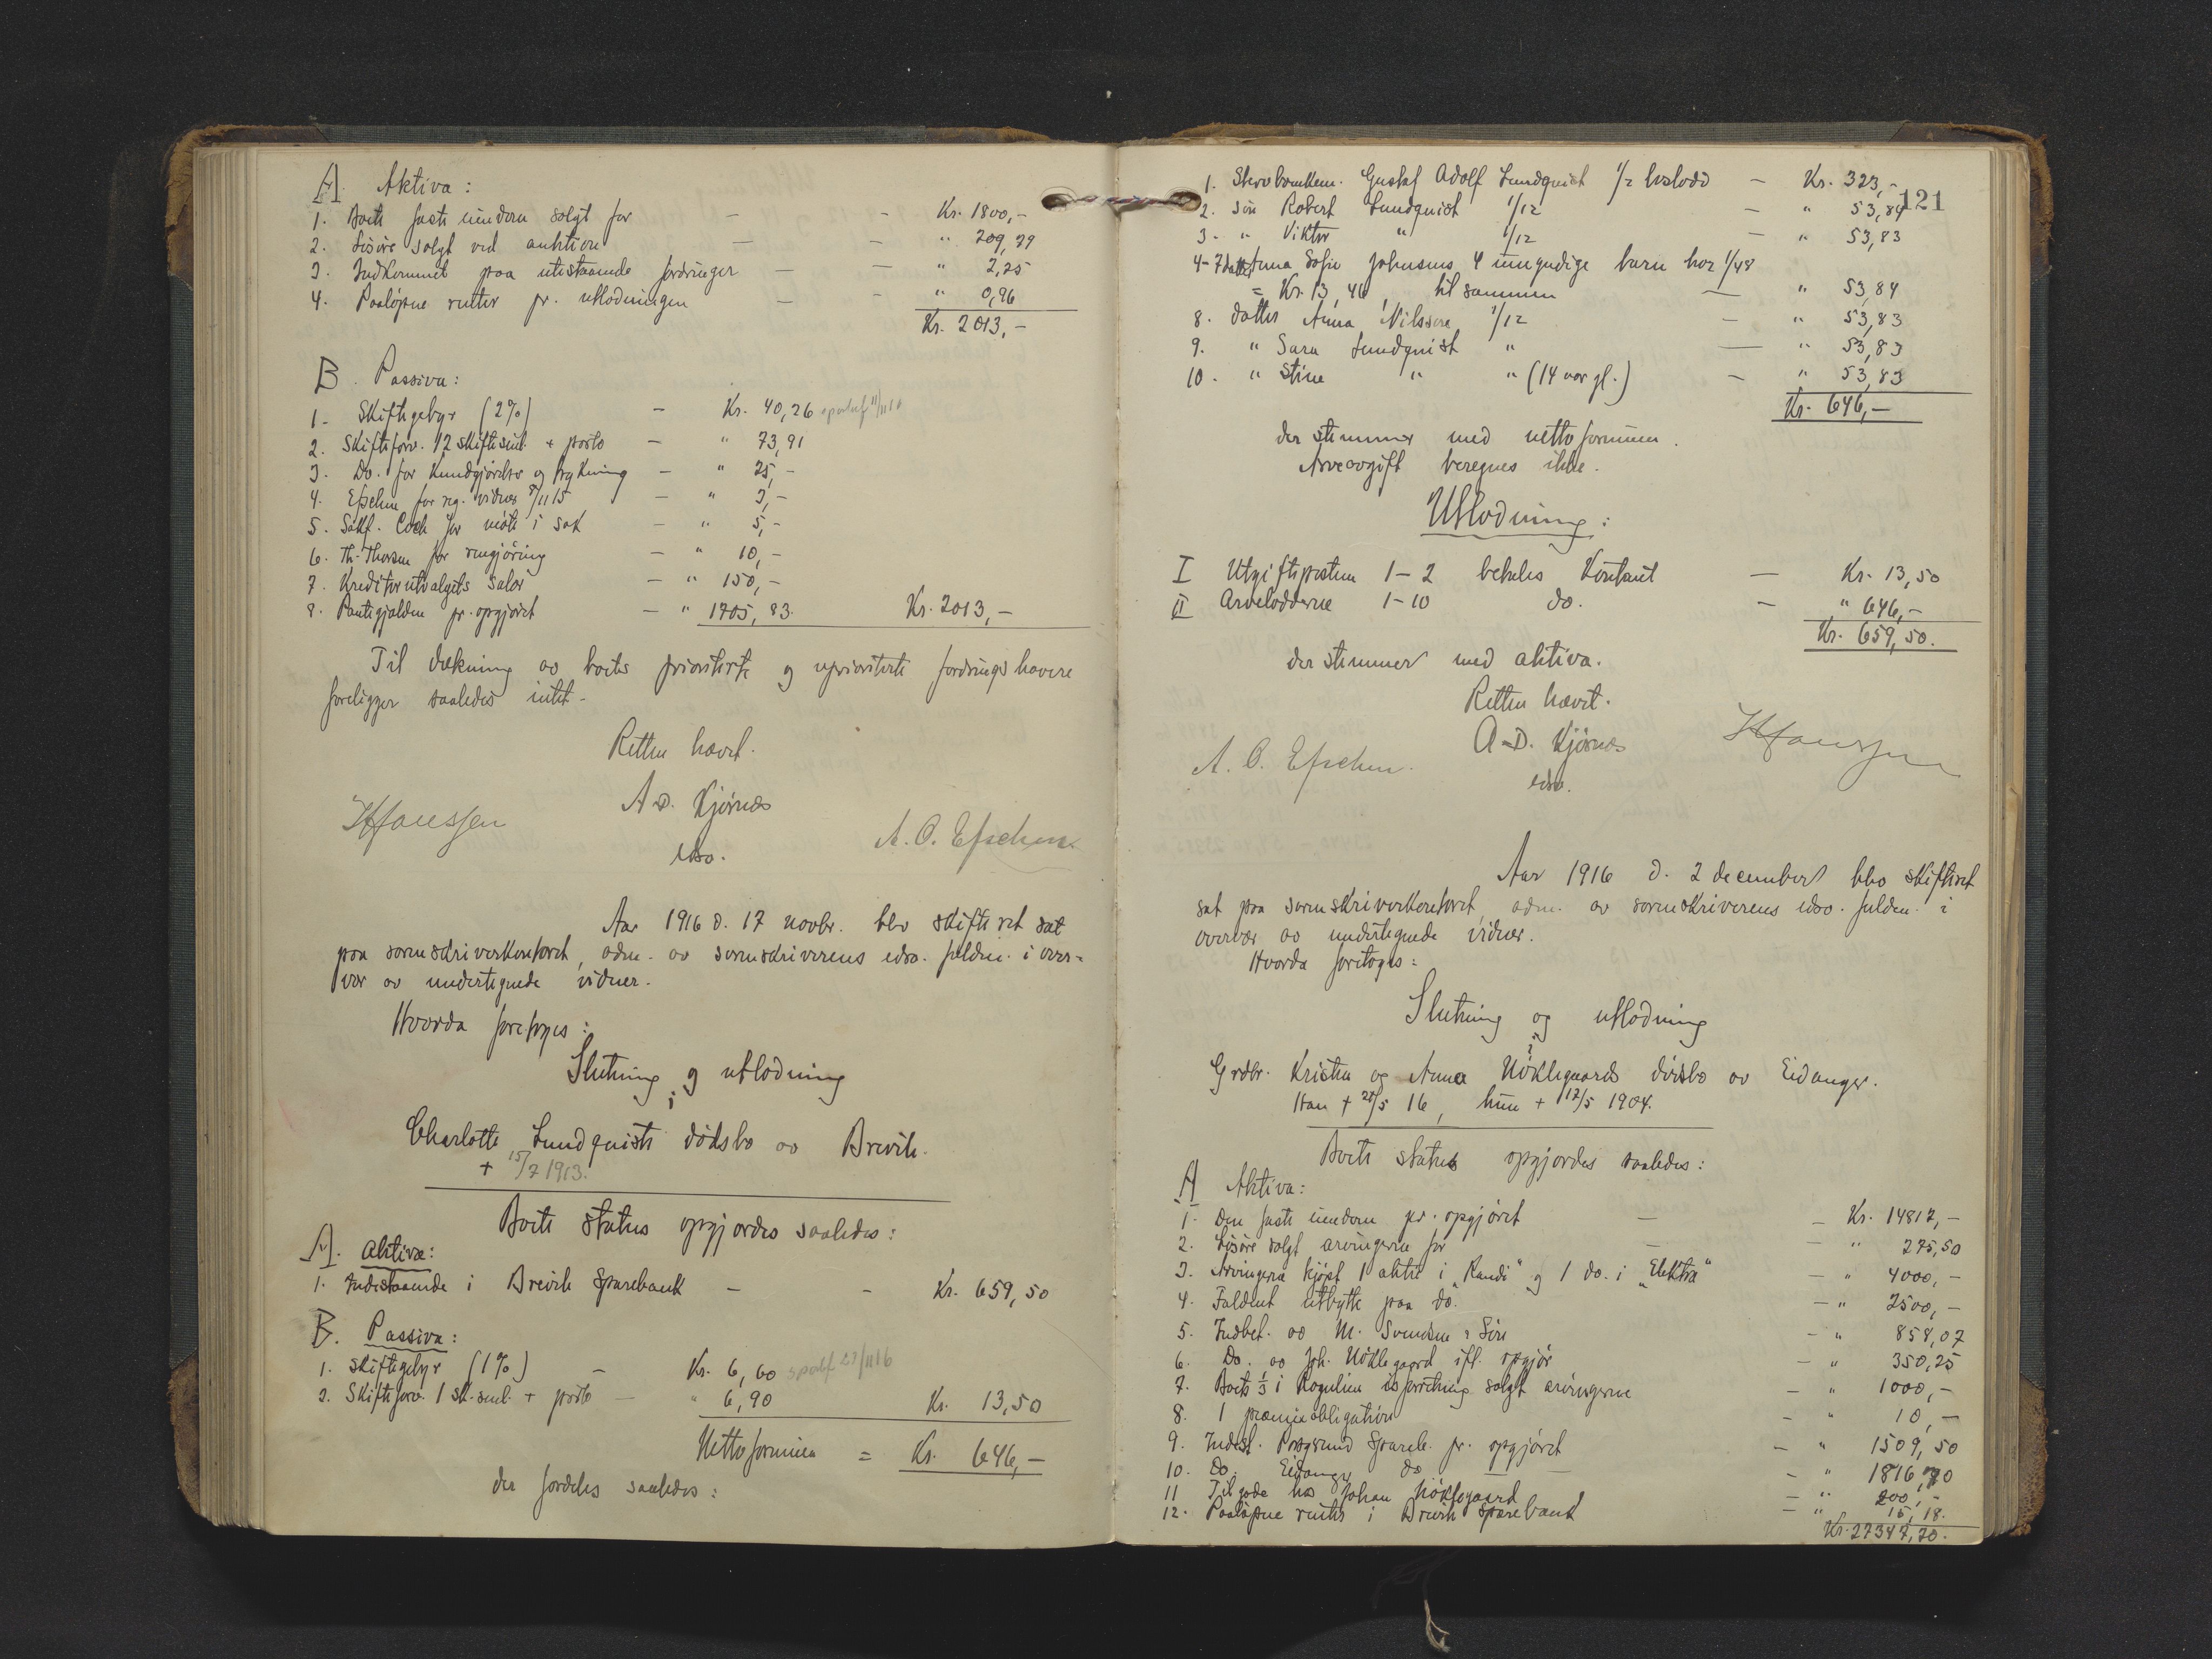 A. Aktiva:
1. Boets faste eiendom solgt for — - Kr. 1800,-
2. Lösöre solgt ved auktion — - " 209,79
3. Indkommet paa utestaaende fordringer — - " 2,25
4. Paaløpne renter pr. utlodningen — - " 0,96
Kr. 2013,-
B. Passiva:
1. Skiftegebyr (2%) - Kr. 40,26
2. Skifteforv. 12 skiftesml. + porto - " 73,91
3. Do. for kundgjörelse og trykning - " 25,-
4. for reg. vidner 8/11 15 - " 3,-
5. Sakf. for möte i sak - " 5,-
6. Th. Thorsen for rengjöring - " 10,-
7. Kreditorutvalgets salær - " 150,-
8. Pantegjælden pr. opgjöret - " 1705,83. Kr. 2013,-
Til dækning av boets prioriterte og uprioriterte fordringshavere
foreligger saaledes intet -
Retten hævet.
A. D. Kjörnes
edsv.
Aar 1916 d. 17 novbr. blev skifteret sat
paa sorenskriverkontoret, adm. av sorenskriverens edsv. fuldm. i over-
vær av undertegnede vidner.
Hvorda foretoges:
Slutning og utlodning
i
Charlotte Lundquists dödsbo av Brevik.
+ 15/7 1913.
Boets status opgjordes saaledes:
A. Aktiva:
1. Indestaaende i Brevik Sparebank - - Kr. 659,50
B. Passiva:
1. Skiftegebyr (1%) - Kr. 6,60
2. Skifteforv. 1 sk.sml. + porto - " 6,90 Kr. 13,50
Nettoformuen = Kr. 646,-
der fordeles saaledes:
121
1. Gustaf Adolf Lundquist 1/2 — Kr. 323,-
2. Sön Robert Lundquist 1/12 — " 53,84
3. " Viktor " 1/12 — " 53,83
4-7 datter Anna Sofie Johnsens 4 umyndige barn hver 1/48
= Kr. 13,46, tilsammen — " 53,84
8. datter Anna Nilssen 1/12 — " 53,83
9. " Sara Lundquist " — " 53,83
10. " Stine " " (14 aar gl.) - " 53,83
Kr. 646,-
der stemmer med nettoformuen.
Arveavgift beregnes ikke.
Utlodning:
I Utgiftsposten 1-2 betales kontant — Kr. 13,50
II Arvelodderne 1-10 do. - " 646,-
Kr. 659,50.
der stemmer med aktiva.
Retten hævet.
A. D. Kjörnes
edsv.
Aar 1916 d. 2 december blev skifteret
sat paa sorenskriverkontoret, adm. av sorenskriverens edsv. fuldm. i
overvær av undertegnede vidner.
Hvorda foretoges:
Slutning og utlodning
i
Grdbr. Kristen og Anna Nöklegaards dödsbo av Eidanger.
Han + 27/5 16, hun + 17/5 1904.
Boets status opgjordes saaledes:
A Aktiva:
1. Den faste eiendom pr. opgjöret — - Kr. 14817,-
2. Lösöre solgt arvingerne for — - " 275,50
3. Arvingerne kjöpt 1 aktie i "Randi" og 1 do. i "Elektra" - " 4000,-
4. Faldent utbytte paa do. - " 2500,-
5. Indbet. av M. Svendsen - " 858,07
6. Do. av Joh. Nöklegaard ifl. opgjör - " 350,25
7. Boets 1/3 i isforretning solgt arvingerne - " 1000,-
8. 1 præmieobligation - " 10,-
9. Indest. Porsgrund Spareb. pr. opgjöret - " 1509,50
10. Do. Eidanger do — - " 1816,70
11 Tilgode hos Johan Nöklegaard - " 200,-
12. Paalöpne renter i Brevik Sparebank - " 15,18.
Kr. 27347,20.